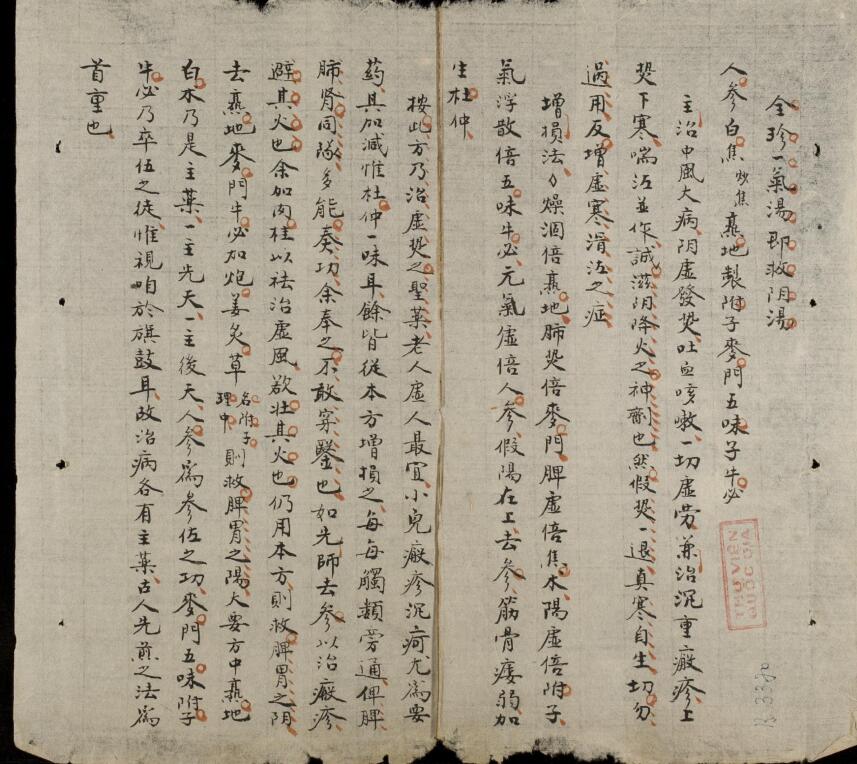 全珍一氣湯即救阴湯
人參白焦炒焦熹地製附子麥門五味子牛必
主治中風大病阴虛發𤍠吐血咳嗽一切虛労兼治沉重癍疹上
𤍠下寒喘泻並作誠滋阴降火之神劑也然假𤍠一退真寒自生切勿
過用反增虛寒滑泻之症
增損法々燥涸倍熹地肺𤍠倍麥門脾虛倍焦术陽虛倍附子
氣浮散倍五味牛必元氣虛倍人參假陽在上去參筋骨痿弱加
生杜仲
按此方乃治虛𤍠之聖藥老人虛人最宜小兒癍疹沉疴尤為要
葯其加減惟杜仲一味耳餘皆從本方增損之每每觸類旁通俾脾
肺腎同隊多能奏功余奉之不敢穿鑿也如先師去參以治癍疹
避其火也余加肉桂以祛治虛風欲壮其火也仍用本方則救脾胃之阴
去熹地麥門牛必加炮姜炙草名附子理中則救脾胃之陽大要方中熹地
白术乃是主薬一主先天一主後天人參爲參佐之功麥門五味附子
牛必乃卒伍之徒惟視咱於旗鼓耳故治病各有主薬古人先煎之法爲
首重也
THƯ VIỆN
QUỐC GIA